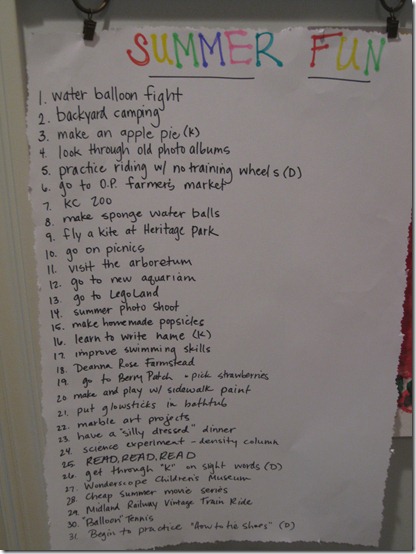 SUMMER FUN
1. water balloon fight
2. backyard camping
3. make an apple pie (K)
4. look through old photo albums
5. practice riding w/ no training wheels (D)
6. go to O.P. farmer's market
7. KC ZOO
8. make sponge water balls
9. fly a kite at Heritage Park
10. go on picnics
11. visit the arboretum
12. go to new aquarium
13. go to LegoLand
14. summer photo shoot
15. make homemade popsicles
16. learn to write name (K)
17. improve swimming skills
18. Deanna Rose Farmstead
19. go to Berry Patch - pick strawberries
20 make and play w/ sidewalk paint
21. put glowsticks in bathtub
22. marble art projects
23. have a "silly dressed" dinner
24. science experiment - density column
25. READ, READ, READ
26. get through "K" on sight words (D)
27. Wonderscope Children's Museum
28. Cheap summer movie series
29. Midland Railway Vintage Train Ride
30. "Balloon" Tennis
31. Begin to practice "how to tie shoes" (D)